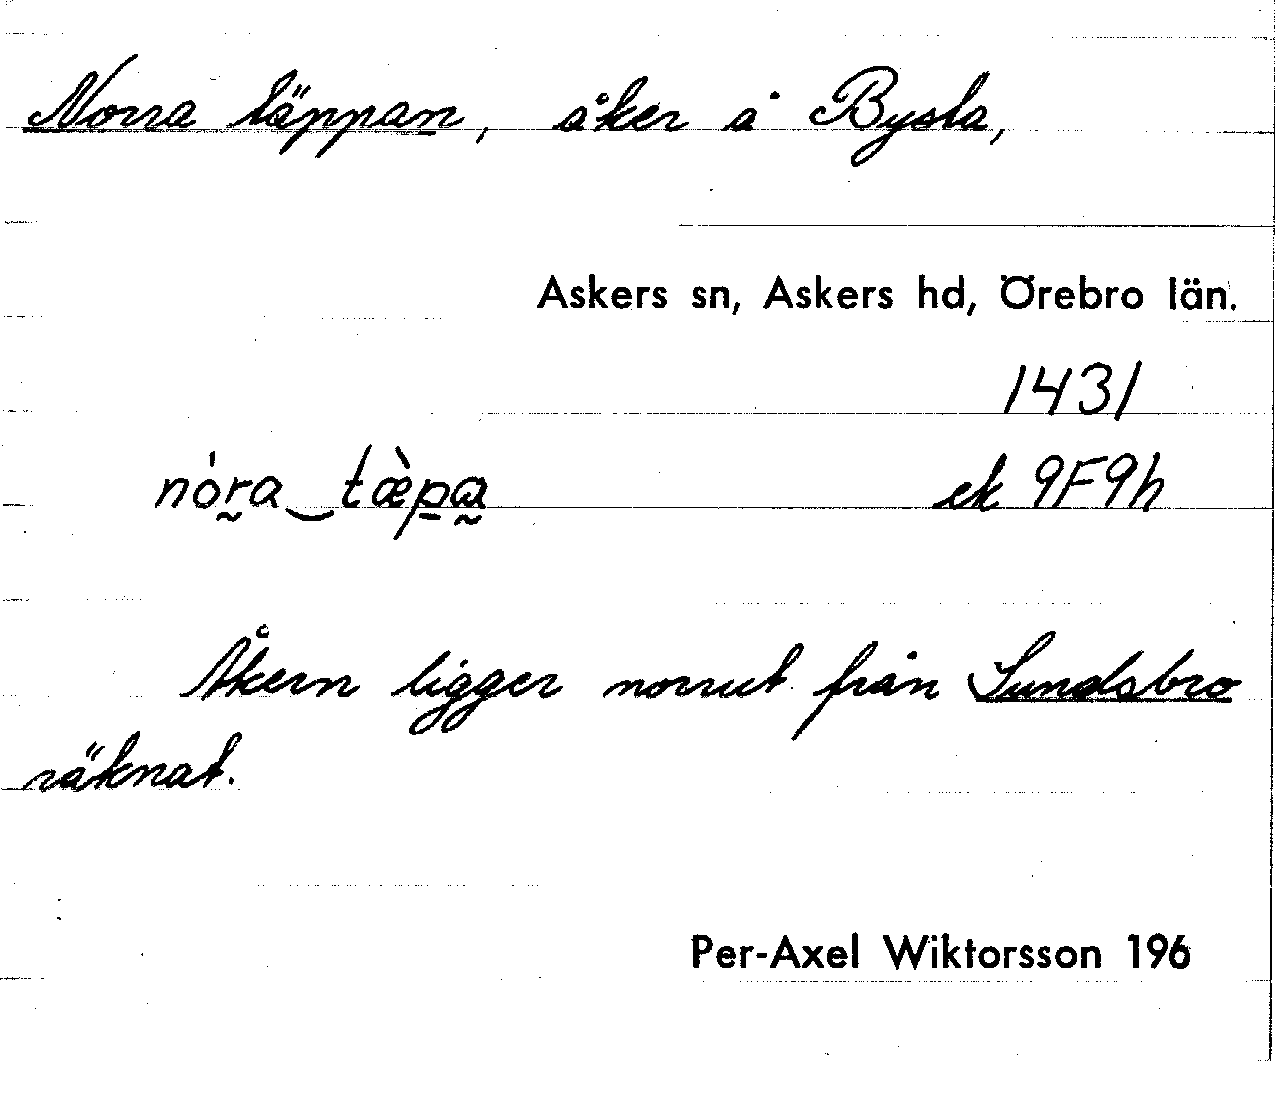 Norra täppan, åker å Bysta,
Askers sn, Askers hd, Örebro län.
1431
nór̰a‿tæ̀p̱a̰ ek 9F9h
Åkern ligger norrut från Sundsbro
räknat.
Per-Axel Wiktorsson 196